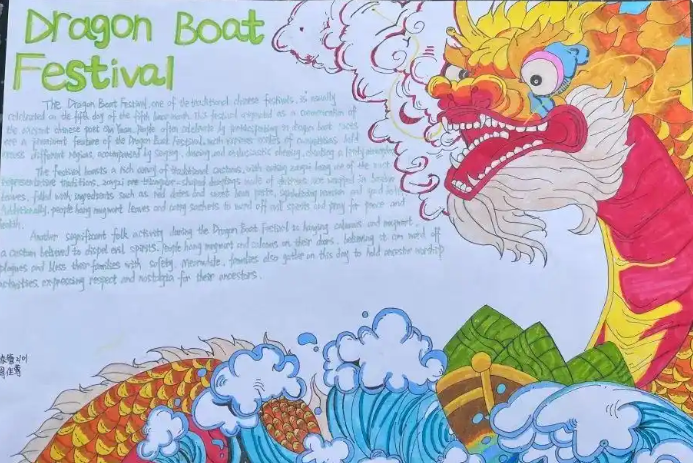 Dragon Boat
Festival
The Dragon Boat Festival, one of the traditional chinese festivals, is usually
celebrated on the fifth day of the fifth lunar month. This festival originated as a commemoration of
the ancient chinese poet Qu Yuan. People often celebrate by participating in dragon boat races
are a prominent feature of the Dragon Boat Festival, with various scales of competitions held
across different regions, accompanied by singing, dancing and enthusiastic cheering, creating a lively
The festival boasts a rich array of traditional customs, with eating zongzi being one of the most
representative traditions. zongzi are
leaves, filled with ingredients such as red dates and
Additionally, people hang mugwort leaves and carry sachets to ward off evil spirits and pray for peace and
health.
Another significant folk activity during the Dragon Boat Festival is hanging calamus and mugwort,
a custom believed to dispel evil spirits. People hang mugwort and calamus on their doors, believing it can ward off
plagues and bless their families with safety. Meanwhile, families also gather on this day to hold ancestor worship
activities, expressing respect and nostalgia for their ancestors.